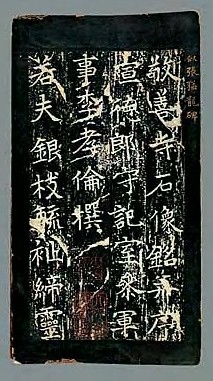 似張猛龍碑
敬善寺石像銘并序
宣德郎守記室叅軍
事李孝倫撰
若夫銀枝毓祉締靈